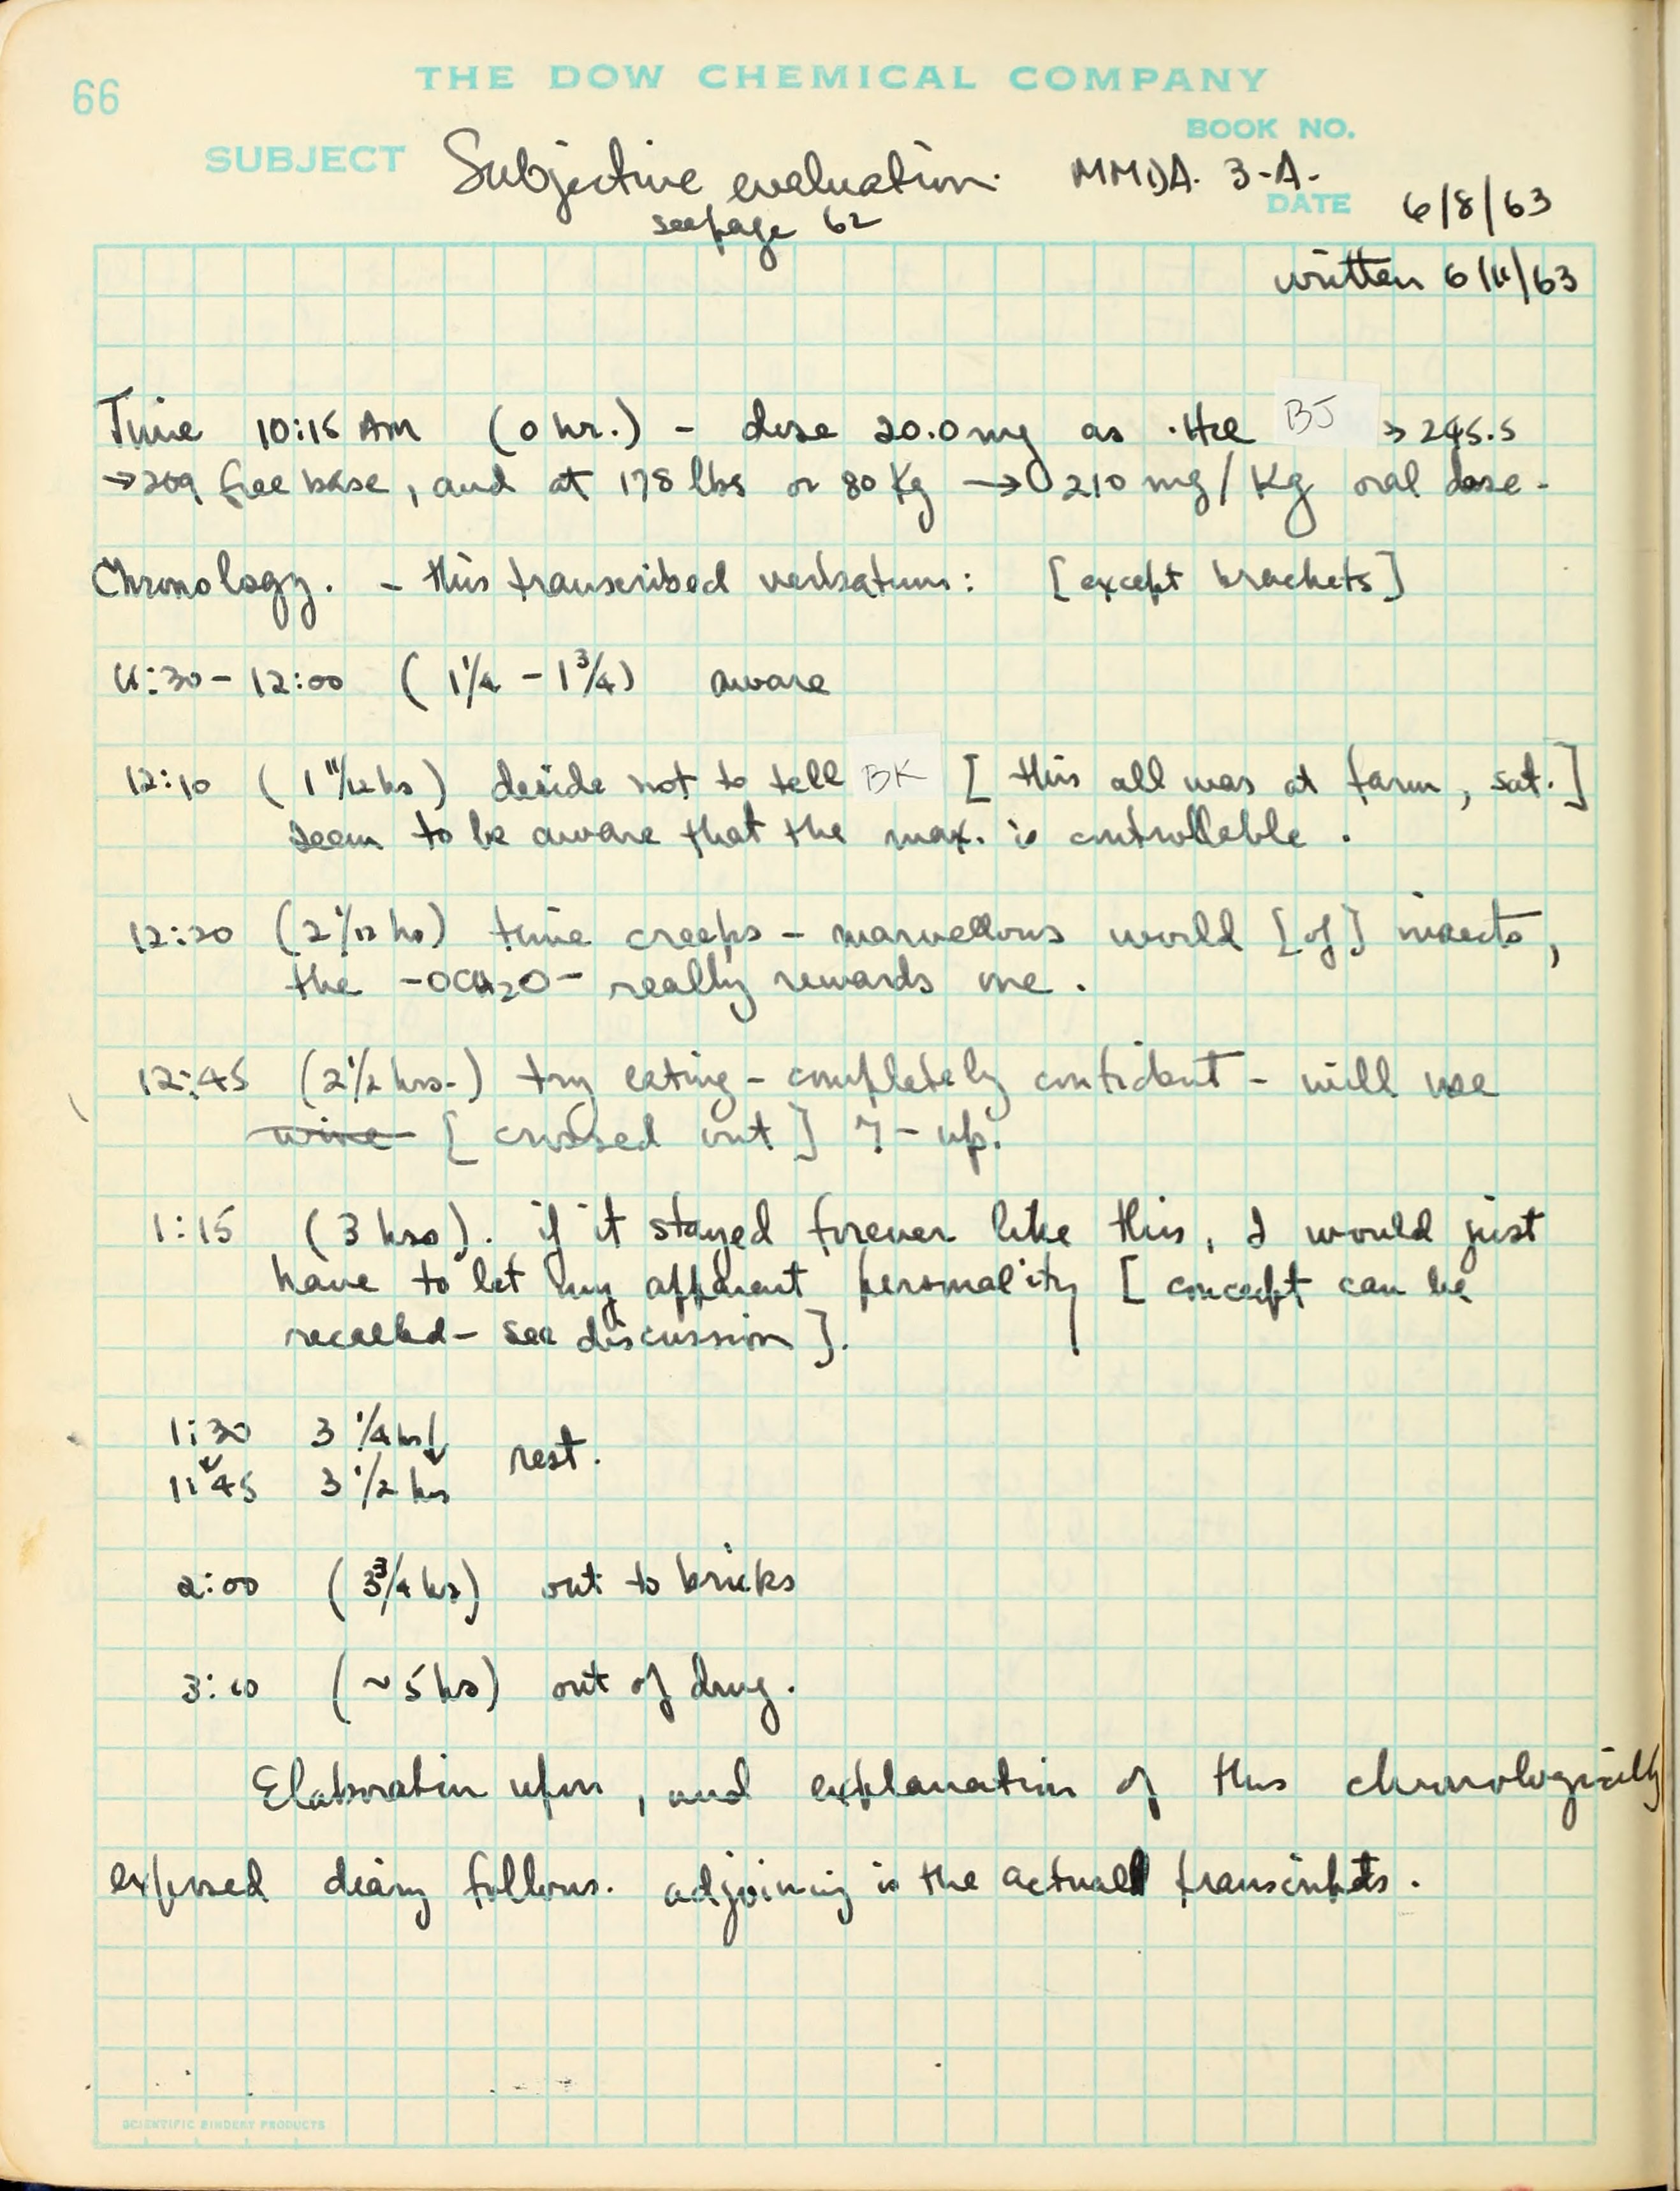 66
THE DOW CHEMICAL COMPANY
BOOK NO.
SUBJECT Subjective evaluation. MMDA. 3-A.
DATE 6/8/63
see page 62
written 6/11/63
Time 10:15 AM (0 hr.) - dose 20.0 mg as ·HCl BJ → 245.5
→ 209 free base, and at 178 lbs or 80 Kg → 0.210 mg/Kg oral dose.
Chronology. - this transcribed verbatum: [except brackets]
11:30 - 12:00 ( 1 1/4 - 1 3/4) aware
12:10 ( 1 11/12 hs) decide not to tell BK [ this all was at farm, sat.]
seem to be aware that the max. is controllable.
12:20 (2 1/12 hs) time creeps - marvellous world [of] insects,
the -OCH2O- really rewards me.
12:45 (2 1/2 hrs.) try eating - completely confident - will use
wine [crossed out] 7-up.
1:15 (3 hrs). if it stayed forever like this, I would just
have to let my apparent personality [concept can be
recalled - see discussion].
1:30 3 1/4 hs ↓
rest.
1:45 3 1/2 hrs
2:00 (3 3/4 hs) out to bricks
3:10 (~5 hs) out of drug.
Elaboration upon, and explanation of this chronologically
exposed diary follows. adjoining is the actual transcripts.
SCIENTIFIC BINDERY PRODUCTS